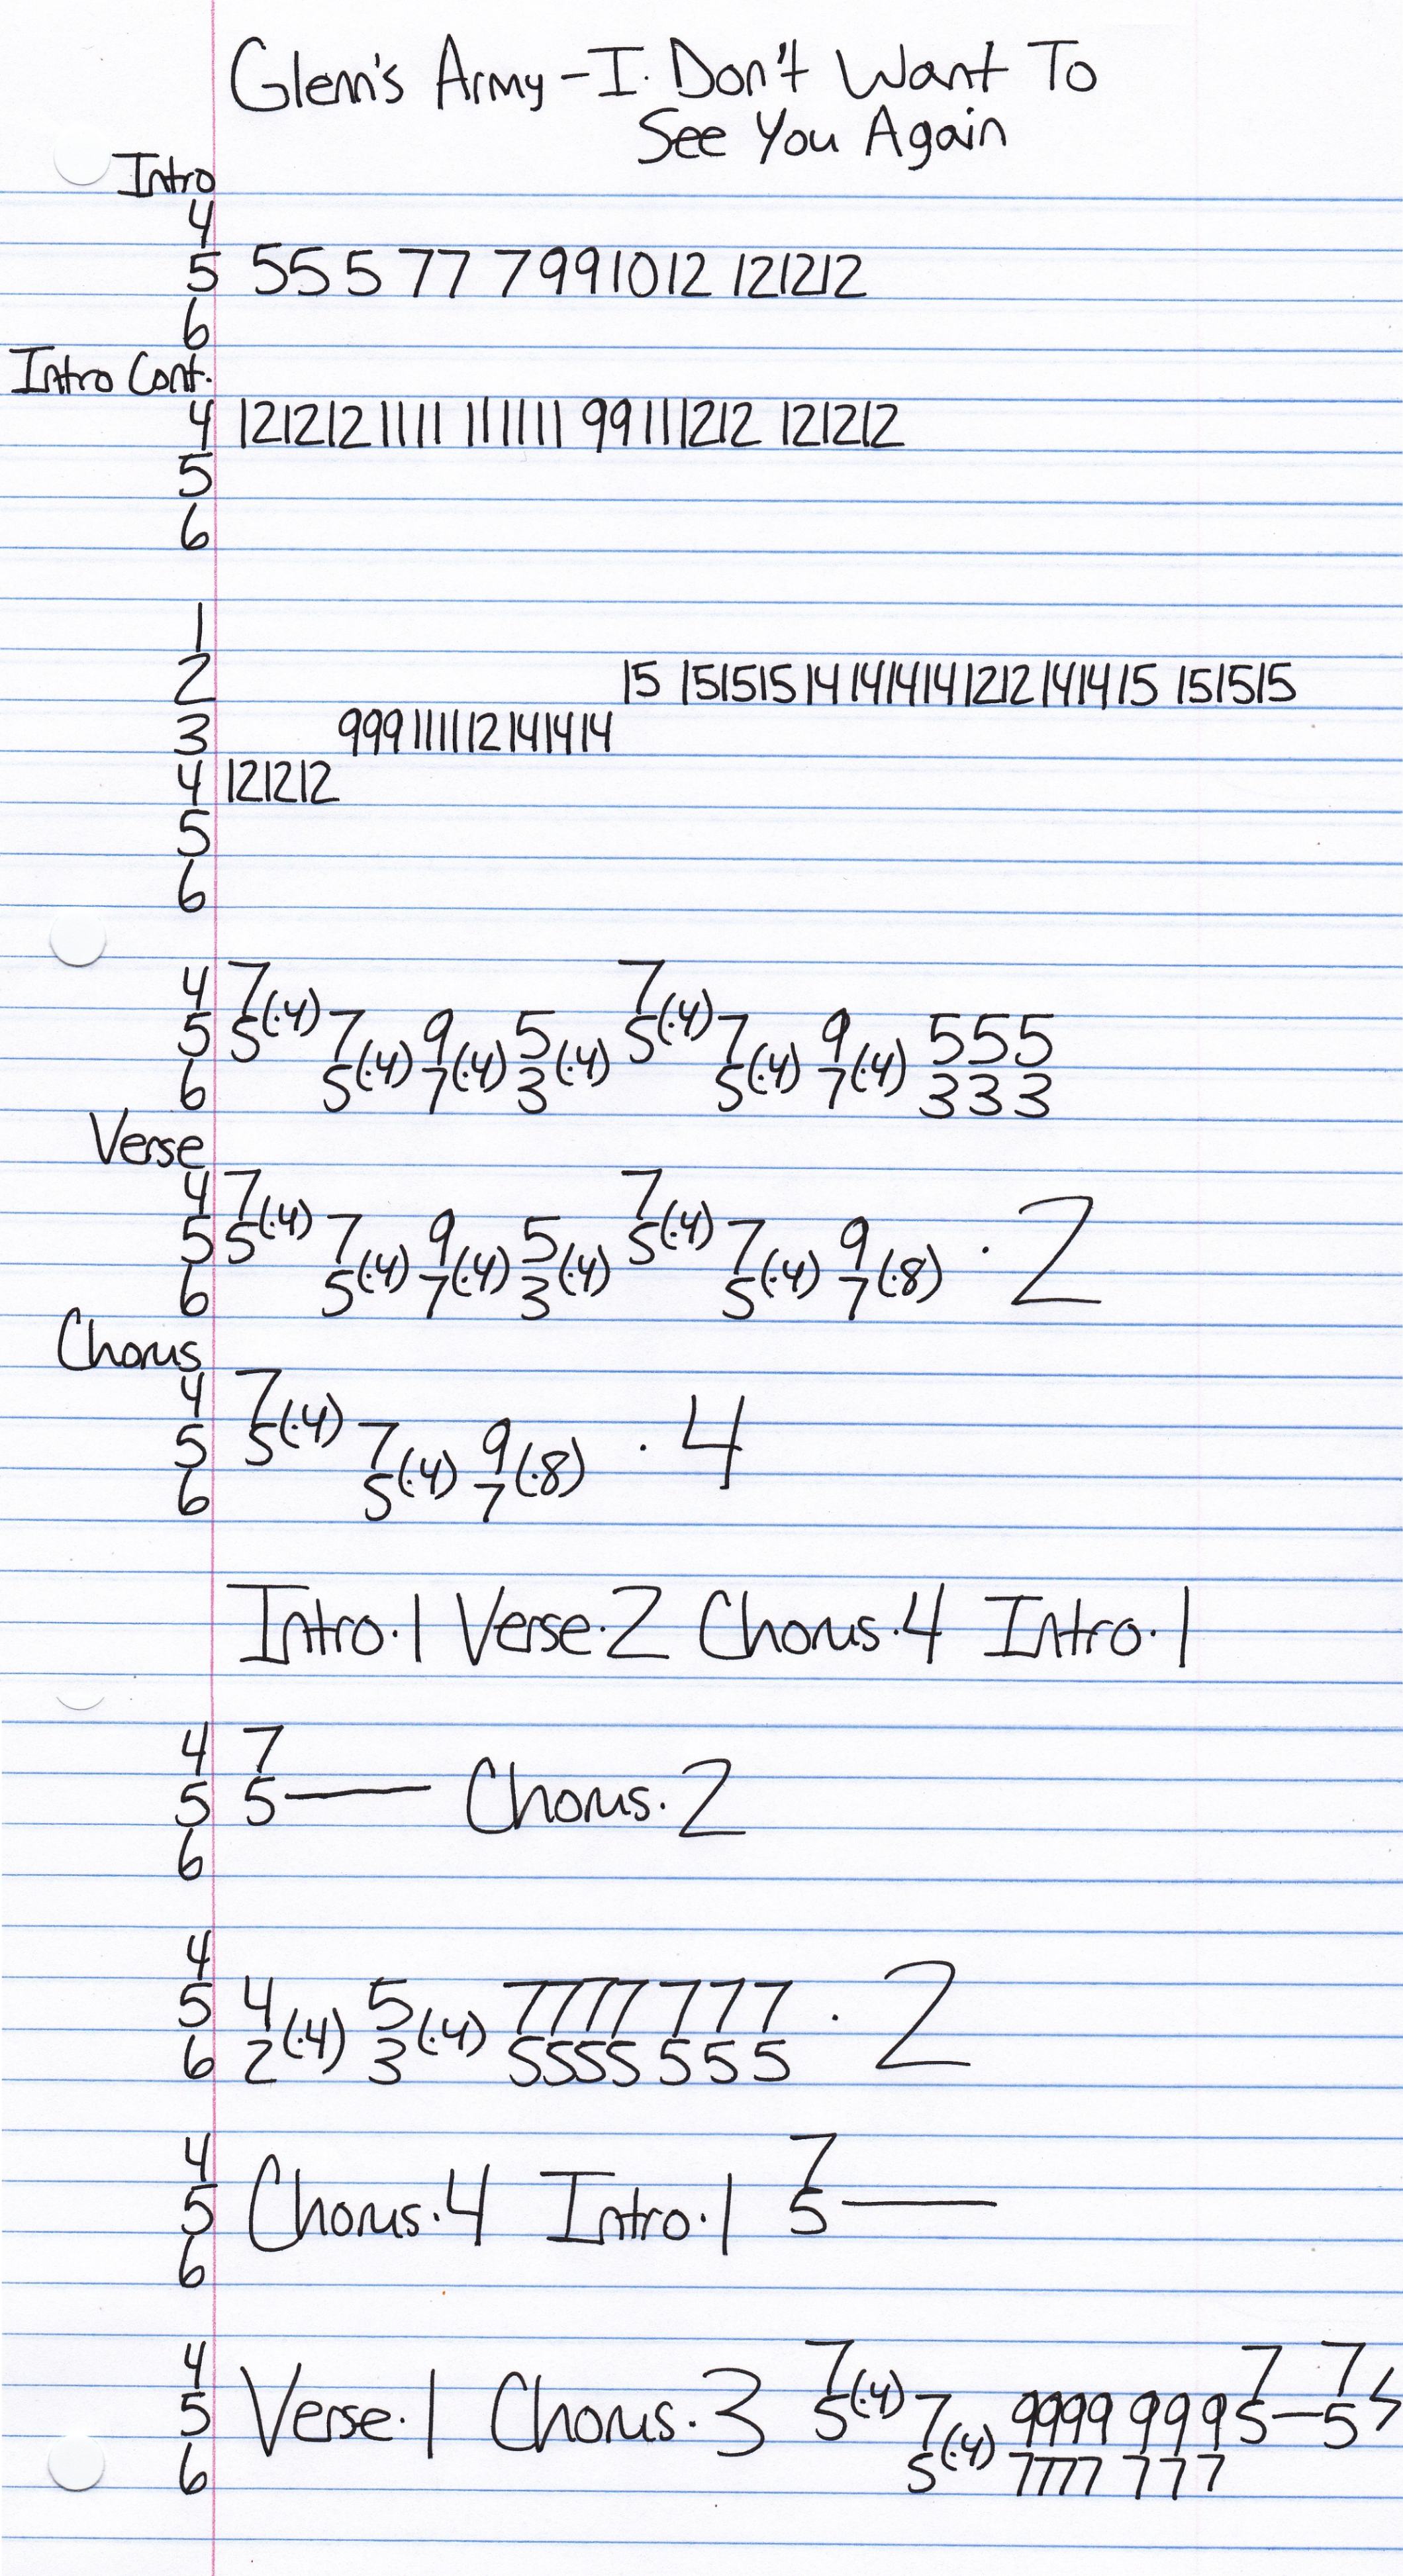 Glenn's Army - I Don't Want To
See You Again
Intro
4
5 555 77 7991012 121212
6
Intro Cont.
4 1212121111 111111 99111212 121212
5
6
1
2 15 151515141414141212141415 151515
3 999111112141414
4 121212
5
6
4 7 7
5 5(·4) 7 9 5 5(·4) 7 9 555
6 5(·4) 7(·4) 3(·4) 5(·4) 7(·4) 333
Verse
4 7 7
5 5(·4) 7 9 5 5(·4) 7 9 · 2
6 5(·4) 7(·4) 3(·4) 5(·4) 7(·8)
Chorus
4 7
5 5(·4) 7 9 · 4
6 5(·4) 7(·8)
Intro·1 Verse·2 Chorus·4 Intro·1
4 7
5 5— Chorus·2
6
4
5 4 5 7777 777 · 2
6 2(·4) 3(·4) 5555 555
4 7
5 Chorus·4 Intro·1 5—
6
4 7 7 7
5 Verse·1 Chorus·3 5(·4) 7 9999 999 5—5
6 5(·4) 7777 777